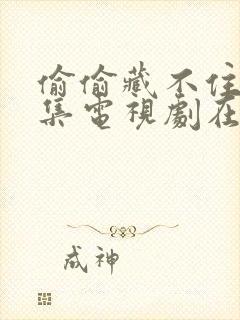 偷偷藏不住
集電視劇在
成神